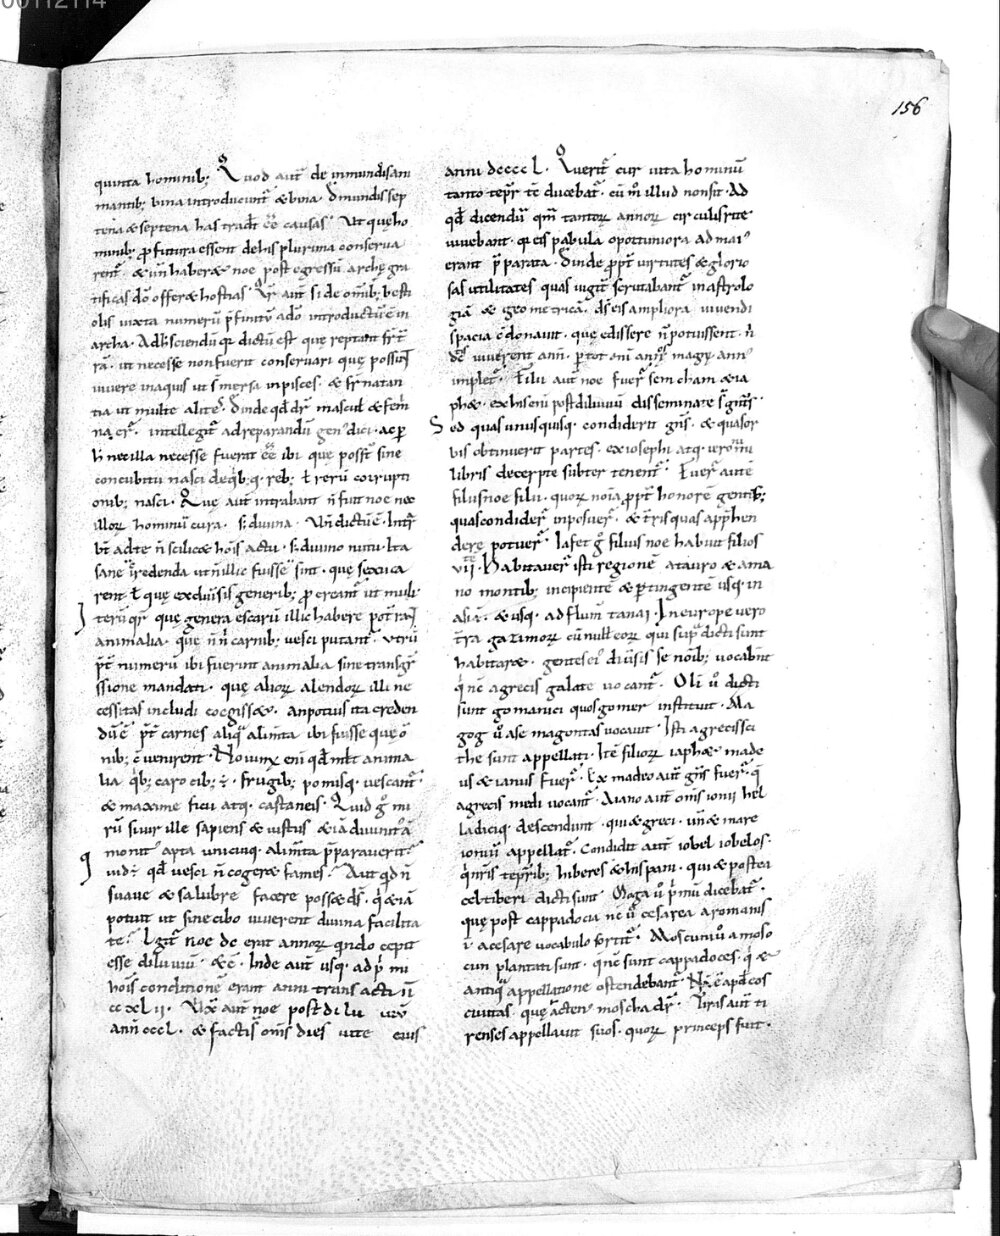 00112114
156
quinta hominib; Quod aut̄ de inmundis ani
mantib; bina introducunt̄ & bina. De mundis sep
tena & septena has tradt̄ ēē causas. Ut quę ho
minib; ꝓfutura essent de his plurima conserva
rent̄. & un̄ haber& noe post egressū archę gra
tificas dō offerre hostias. Qr̄ aut̄ si de om̄ib; besti
olis iuxta numerū p̄finitū a dō introductū ē in
archa. Ad h̄ sciendū qđ dictū est quę reptant sr̄ t̄
rā. ut necesse non fuerit conservari quę possun̄
vivere in aquis ut s̄mersi in pisces. & sr̄ natan
tia ut multe alites. Deinde qđ dr̄ mascul & femi
na er̄. intellegit̄ ad reparandū gen' dici. ac ꝑ
h̄ nec illa necesse fuerit ēē ibi que poss̄t sine
concubitu nasci de qb; q. reb; ł rerū corrupti
onib; nasci. Quę aut̄ intrabant n̄ fuit noe nec
illoꝝ hominū cura. s; divina. Un̄ dictū ē. Intr̄
bt̄ ad te n̄ scilic& hoīs actu. s; divino nutu. Ita
sane credenda ut n̄ illic fuisse sint. quę sexu ca
rent ł quę ex divisis generib; ꝓcreant̄ ut muli
terū qr̄ quę genera escarū illic habere pot̄rant
animalia. quę n̄ n̄ carnib; vesci putant̄. utrū
p̄t̄ numerū ibi fuerint animalia sine transgr̄
ssione mandati. quę alioꝝ alendoꝝ illi ne
cessitas includi coegiss&. an potius ita creden
dū ē p̄t̄ carnes aliq̄ alim̄ta ibi fuisse quę ō
nib; c̄venirent. Novim' enī qđ mlt̄ anima
lia qb; caro cib; ÷. frugib; pomisq; vescant̄
& maxime ficu atq; castaneis. Quid ḡ mi
rū si vir ille sapiens & iustus & iā divinit' ā
monit' apta unicuiq; alim̄ta p̄paraverit
vid÷ qđ vesci n̄ coger& fames. Aut qđ n̄
suave & salubre facere poss& ds̄. q̄ & iā
potuit ut sine cibo viverent divina facilita
te. Igit̄ noe dc erat annoꝝ qndo cepit
esse diluviū. & ē. Inde aut̄ usq; ad p̄mi
hoīs conditionē erant anni transacti īī
cc xl ii. Vix̄ aut̄ noe post dilu viū
ann̄ cccl. & facti s̄ om̄s dies vite eius
anni dcccc l. Querit̄ cur vita hominū
tanto tepr̄ tē ducebat̄. cū m̄ illud non sit. Ad
qđ dicendū qm̄ tantoꝝ annoꝝ circulis rite
vivebant. qr eis pabula oportuniora ad mai'
erant p̄parata. Deinde ꝓpt̄ virtutes & glorio
sas utilitates quas iugit̄ scrutabant̄ in astrolo
giā & geometricā. ds̄ eis ampliora vivendi
spacia c̄donavit. quę edissere n̄ potuissent. n̄
dc̄s viverent ann̄. ꝑ tot eni ann̄ magn' ann'
implet̄. Filii aut̄ noe fuer̄ sem cham & ia
ph&. ex his eni post diluviū disseminate s̄ gn̄ts.
Sed quas unusquisq; condiderit gn̄s. & quas or
bis obtinuerit partes. ex iosephi atq; veronim̄
libris decerpte subter tenent̄. Fuer̄ autē
filiis noe filii. quoꝝ noīa ꝓpt̄ honorē gentib;
quas condider̄ inposuer̄. & t̄ris quas app̄hen
dere potuer̄. Iafet ḡ filius noe habuit filios
vii. Habitaver̄ isti regionē a tauro & ama
no montib; incipiente & pertingentē usq; in
asiā. & usq; ad flum̄ tanai. In europe vero
t̄ra gazimoꝝ cū null' eoꝝ qui sup̄ dicti sunt
habitar&. gentes ei' divisis se noīb; vocabn̄t
q̄ nc̄ a grecis galate vocant̄. Oli ū dicti
sunt gomarici quos gomer instituit. Ma
gog ū ase magontas vocavit. Isti a grecis sci
the sunt appellati. Itē filioꝝ iaph& made
us & ianus fuer̄. Ex madeo aut̄ gn̄s fuer̄. q̄
a grecis medi vocant̄. A iano aut̄ om̄s ionii hel
ladiciq; descendunt. qui & greci. un̄ & mare
ioniū appellat̄. Condidit aut̄ iobel iobelos.
q̄ nr̄is teprib; hiberes & hispani. qui & postea
celtiberi dicti sunt. Moga ū p̄mū dicebat̄.
quę post cappadocia nc̄ ū cesarea a romanis
ī. a cesare vocabulo sortit̄. Moscui ū a moso
cun plantati sunt. q̄ nc̄ sunt cappadoces. q̄ &
antiq̄ appellatione ostendebant̄. N̄ ē apđ eos
civitas quę acten' moscha dr̄. Tiras aut̄ ti
renses appellavit suos. quoꝝ princeps fuit.